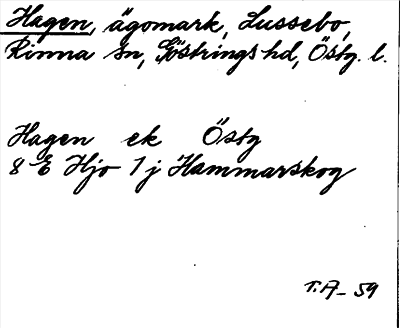 Hagen, ägomark, Lussebo,
Rinna sn, Göstrings hd, Östg. l.
Hagen ek Östg
8 E Hjo 1 j Hammarskog
T.A- 59